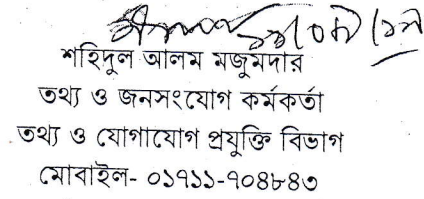 শহিদুল আলম মজুমদার
তথ্য ও জনসংযোগ কর্মকর্তা
তথ্য ও যোগাযোগ প্রযুক্তি বিভাগ
মোবাইল- ০১৭১১-৭০৪৮৪৩